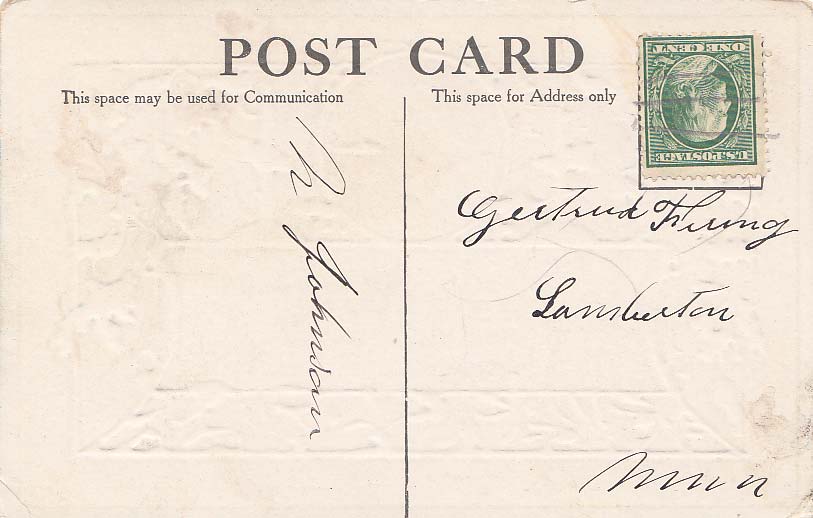 POST CARD
This space may be used for Communication
This space for Address only
ONE CENT
U.S. POSTAGE
N Johnson
Gertrud
Lamberton
Minn